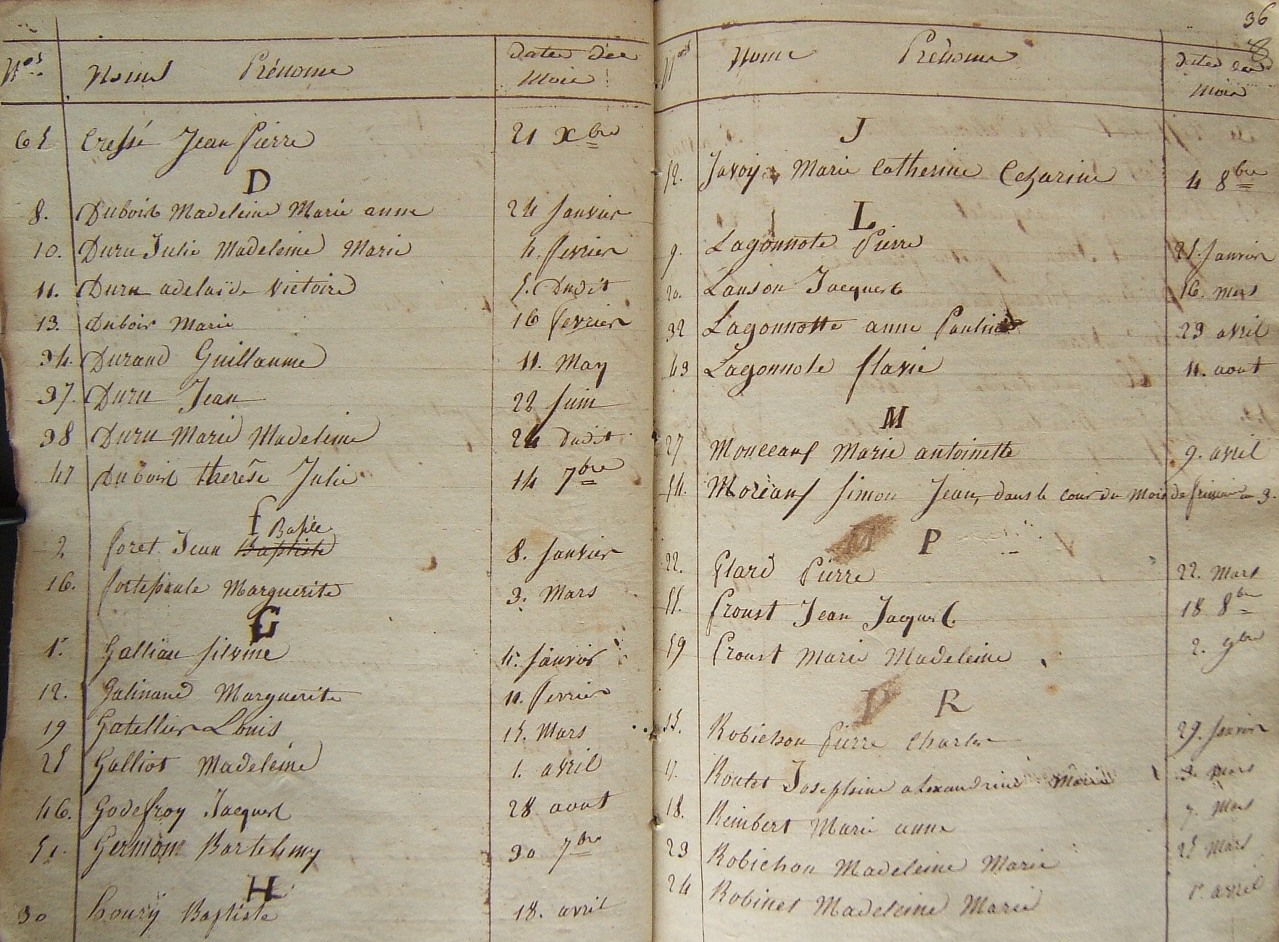 Nos Noms Prénoms dates des Mois
65 Cressé Jean Pierre 21 Xbre
D
8. Dubois Madeleine Marie anne 24 Janvier
10. Duru Julie Madeleine Marie 4. fevrier
11. Duru adelaïde Victoire 5. Dudit
13. Dubois Marie 16 fevrier
34. Durand Guillaume 11. May
37. Duru Jean 22 Juin
38 Duru Marie Madeleine 24 dudit
47 Dubois therése Julie 14 7bre
f
Basile
2 foret Jean Baptiste 8. Janvier
16. fortepaule Marguerite 3. Mars
G
1r Gallian Silvine Janvier
12. Galinand Marguerite 11. fevrier
19 Gatellier Louis 15. Mars
25 Galliot Madeleine 1. avril
46. Godefroy Jacques 28. aout
51. Germain Bartelemy 30 7bre
H
30 houry Baptiste 18. avril
36
Nos Noms Prénoms dates des Mois
J
52. Javoy Marie Catherine Cezarine 4 8bre
L
9. Lagonnote Pierre 25. Janvier
20. Lanson Jacques 16. mars
32 Lagonnotte anne Pauline 23 avril
43 Lagonnote flavie 11. aout
M
27 Monceau Marie antoinette 9. avril
54. Moreau Simon Jean, dans le cour du Mois de frimaire an 3.
P
22. Plard Pierre 22. Mars
55. Proust Jean Jacques 18. 8bre
59 Proust Marie Madeleine 2. 9bre
R
15. Robichon Pierre Charles 29. Janvier
17. Routet Josephine alexandrine Marie 3. mars
18. Reimbert Marie anne 7. Mars
23 Robichon Madeleine Marie 25 Mars
24 Robinet Madeleine Marie 1r avril